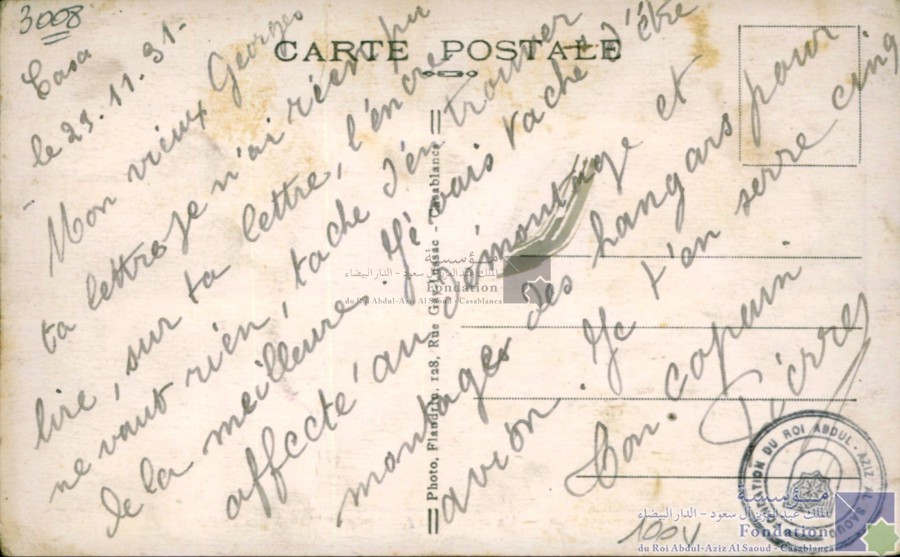 3008
CARTE POSTALE
Casa
le 23.11.31-
Mon vieux Georges
ta lettre je n'ai rien pu
lire, sur ta lettre, l'encre
ne vaut rien, tache d'en trouver
de la meilleure. Je vais taché d'être
affecté au démontage et
montages des hangars pour
avion. Je t'en serre cinq
ton copain
Pierre
Photo, Flandrin, 128, Rue Gay-Lussac - Casablanca
مؤسسة
الملك عبد العزيز آل سعود - الدار البيضاء
Fondation
du Roi Abdul-Aziz Al Saoud - Casablanca
DU ROI ABDUL-AZIZ AL SAOUD
مؤسسة
الملك عبد العزيز آل سعود - الدار البيضاء
Fondation
du Roi Abdul-Aziz Al Saoud - Casablanca